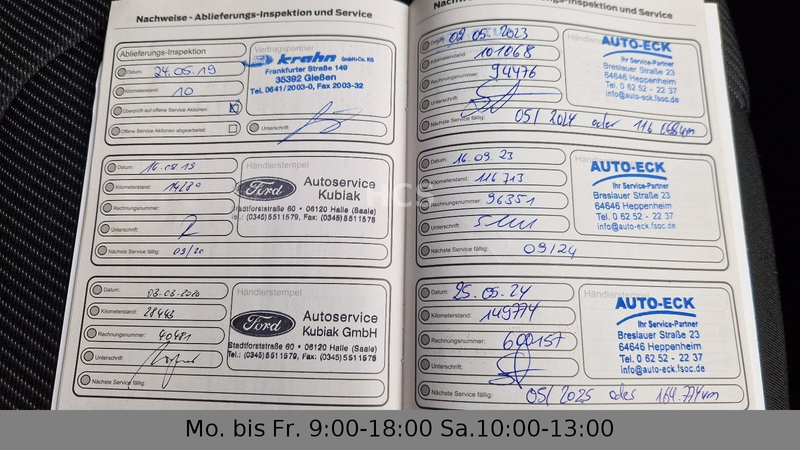 Nachweise - Ablieferungs-Inspektion und Service
Ablieferungs-Inspektion
Vertragspartner
Datum: 24.05.19
Kilometerstand: 10
Überprüft auf offene Service Aktionen:
Offene Service Aktionen abgearbeitet:
krahn GmbH+Co. KG
Frankfurter Straße 149
35392 Gießen
Tel. 0641/2003-0, Fax 2003-32
Unterschrift:
Datum:
Kilometerstand:
Rechnungsnummer:
Unterschrift:
Nächste Service fällig: 03/20
Händlerstempel
Ford
Autoservice
Kubiak
Stadtforststraße 60 • 06120 Halle (Saale)
Tel.: (0345) 5511579, Fax: (0345) 5511578
Datum: 03-03-2020
Kilometerstand: 28443
Rechnungsnummer: 40481
Unterschrift:
Nächste Service fällig:
Händlerstempel
Ford
Autoservice
Kubiak GmbH
Stadtforststraße 60 • 06120 Halle (Saale)
Tel.: (0345) 5511579, Fax: (0345) 5511578
HCS
-Inspektion und Service
02.05.2023
Kilometerstand: 101068
Rechnungsnummer: 94476
Unterschrift:
Nächste Service fällig: 05/2024 oder
AUTO-ECK
Ihr Service-Partner
Breslauer Straße 23
64646 Heppenheim
Tel. 0 62 52 - 22 37
info@auto-eck.fsoc.de
Datum: 16.09.23
Kilometerstand: 116713
Rechnungsnummer: 96351
Unterschrift:
Nächste Service fällig: 09/24
AUTO-ECK
Ihr Service-Partner
Breslauer Straße 23
64646 Heppenheim
Tel. 0 62 52 - 22 37
info@auto-eck.fsoc.de
Datum: 25.05.24
Kilometerstand: 149774
Rechnungsnummer: 600157
Unterschrift:
Nächste Service fällig: 05/2025 oder 164.774km
AUTO-ECK
Ihr Service-Partner
Breslauer Straße 23
64646 Heppenheim
Tel. 0 62 52 - 22 37
info@auto-eck.fsoc.de
Mo. bis Fr. 9:00-18:00 Sa.10:00-13:00